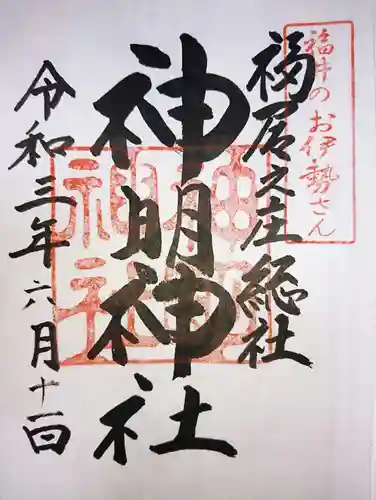 福井のお伊勢さん
福居之庄総社
神明神社
令和三年六月十一日
神明神社